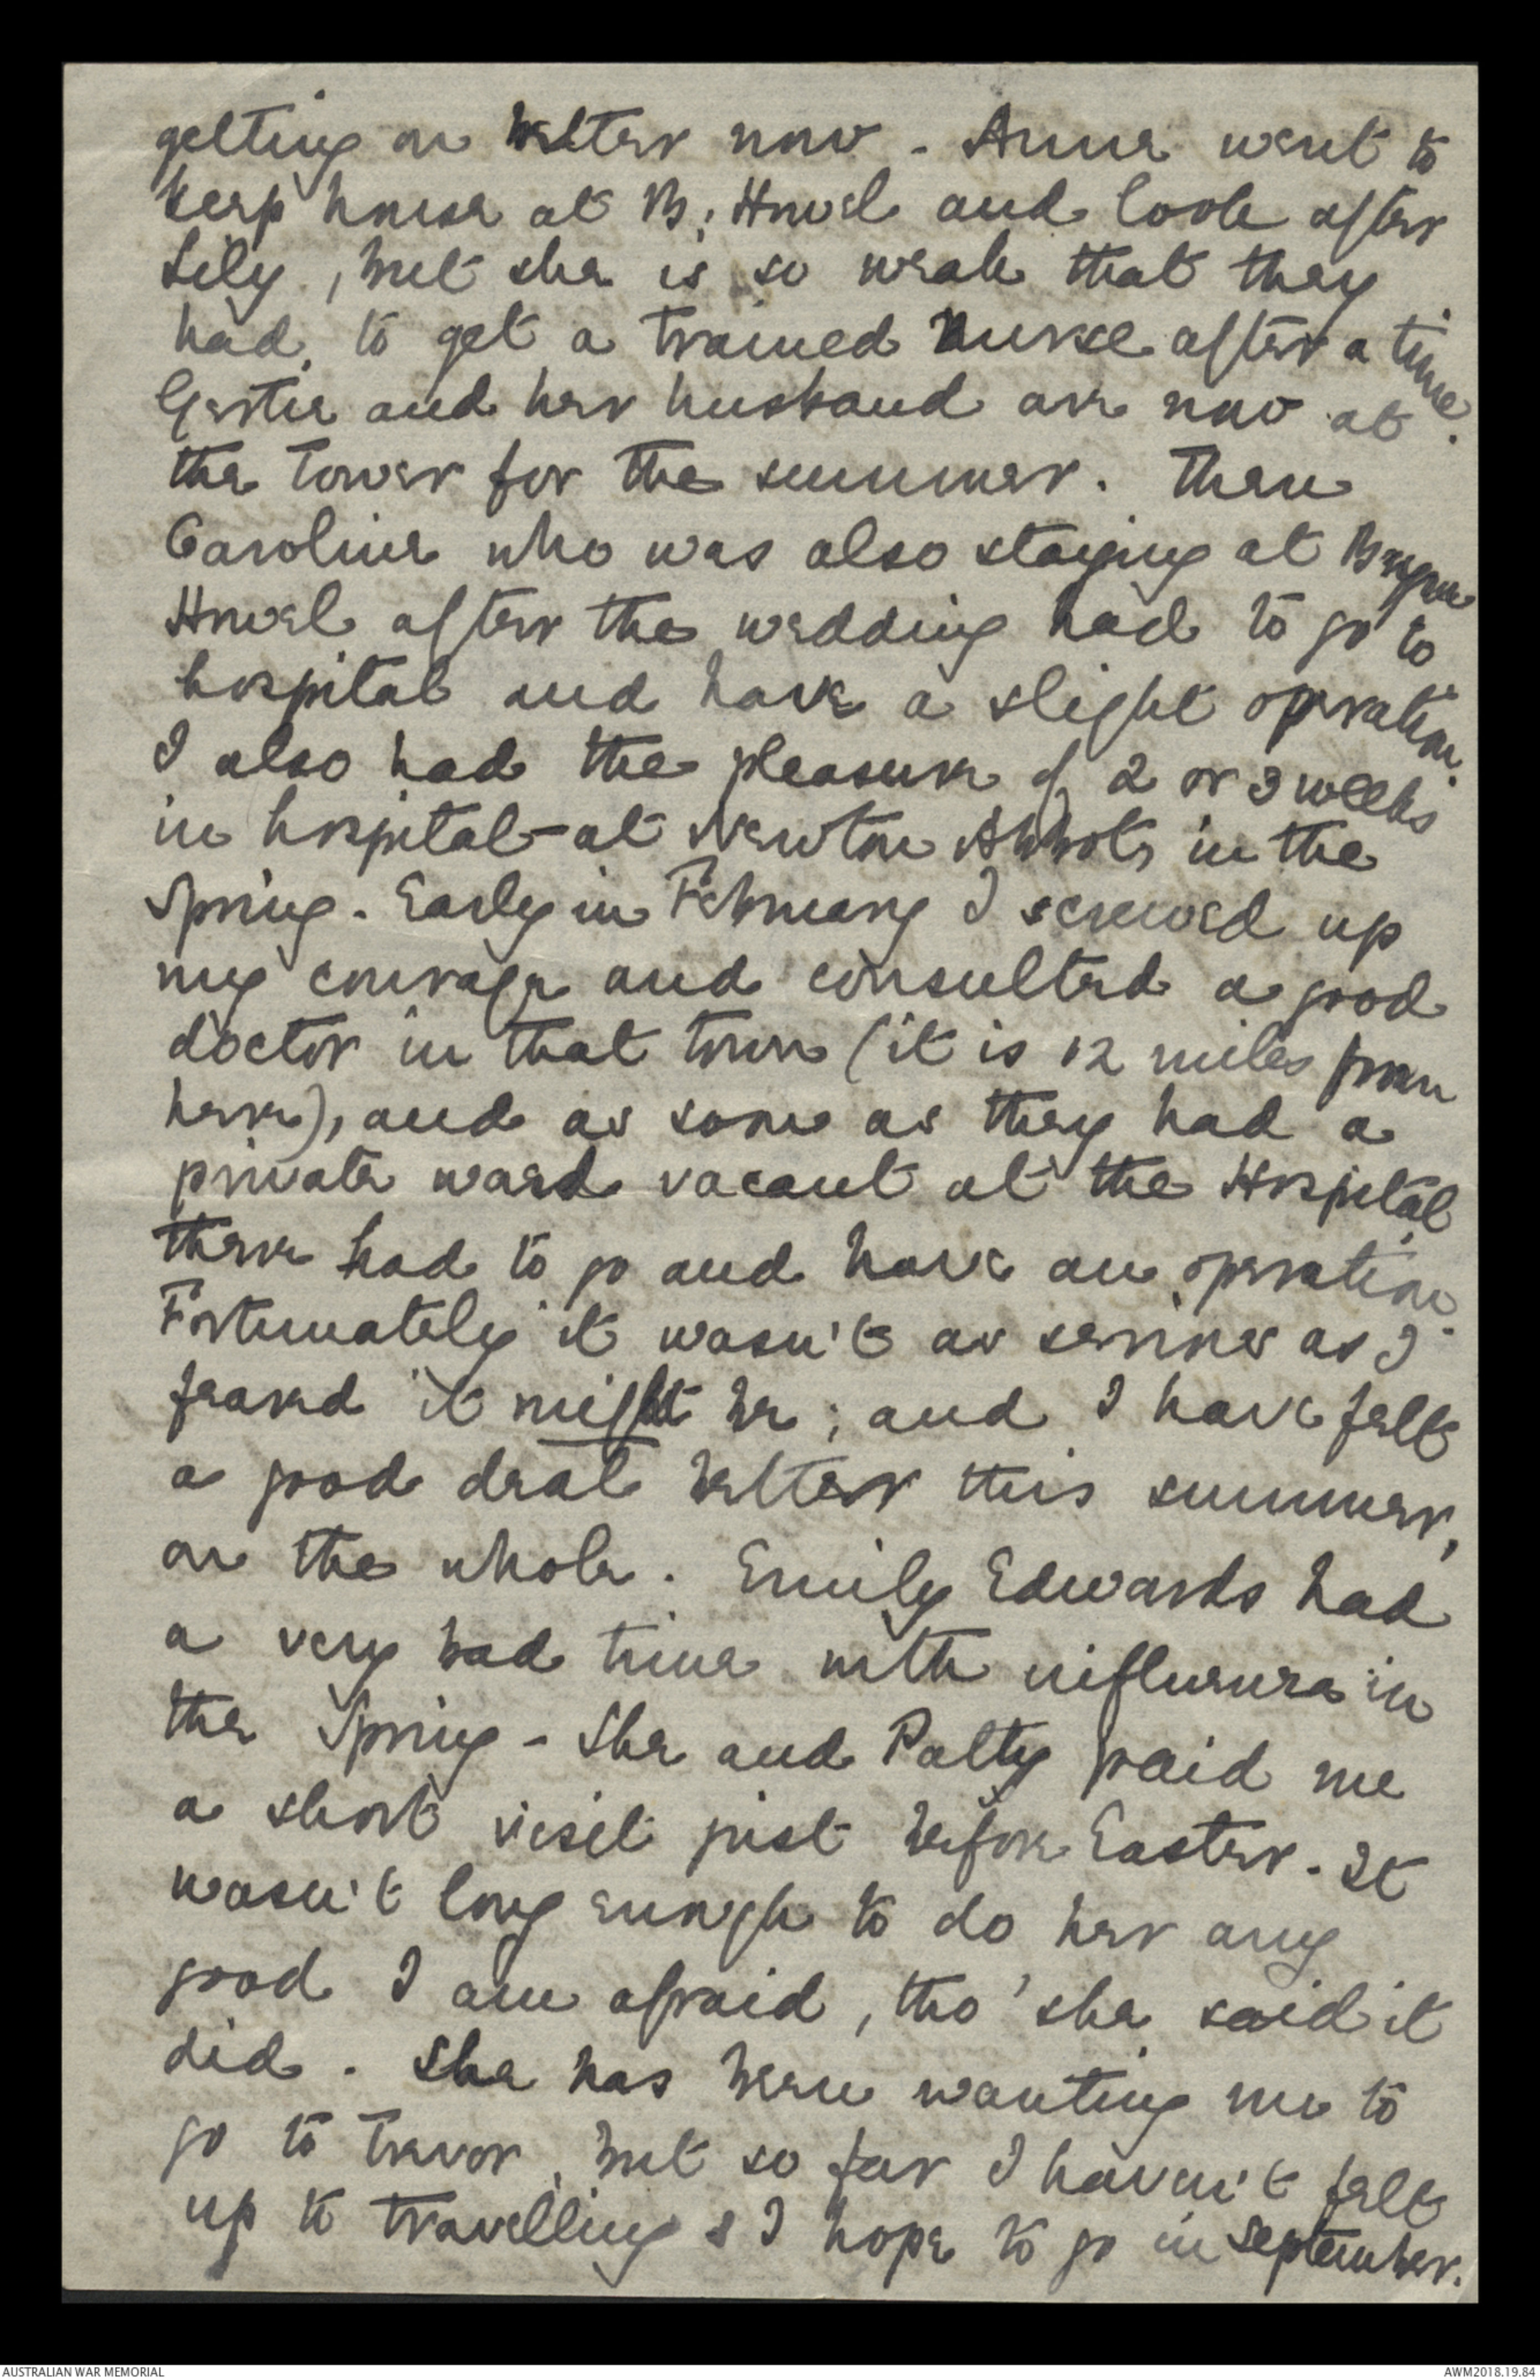 getting on better now - Anna went to
keep house at B: Howel and look after
Lily, but she is so weak that they
had to get a trained nurse after a time.
Gertie and her husband are now at
the Tower for the summer. Then
Caroline who was also staying at Bryn
Howel after the wedding had to go to
hospital and have a slight operation.
I also had the pleasure of 2 or 3 weeks
in hospital - at Newton Abbot, in the
Spring. Early in February I screwed up
my courage and consulted a good
doctor in that town (it is 12 miles from
here), and as soon as they had a
private ward vacant at the Hospital
there had to go and have an operation.
Fortunately it wasn't as serious as I
feared it might be; and I have felt
a good deal better this summer,
on the whole. Emily Edwards had
a very bad time with influenza in
the Spring - She and Patty paid me
a short visit just before Easter. It
wasn't long enough to do her any
good I am afraid, tho' she said it
did. She has been wanting me to
go to Trevor, but so far I haven't felt
up to travelling & I hope to go in September.
AUSTRALIAN WAR MEMORIAL
AWM2018.19.84